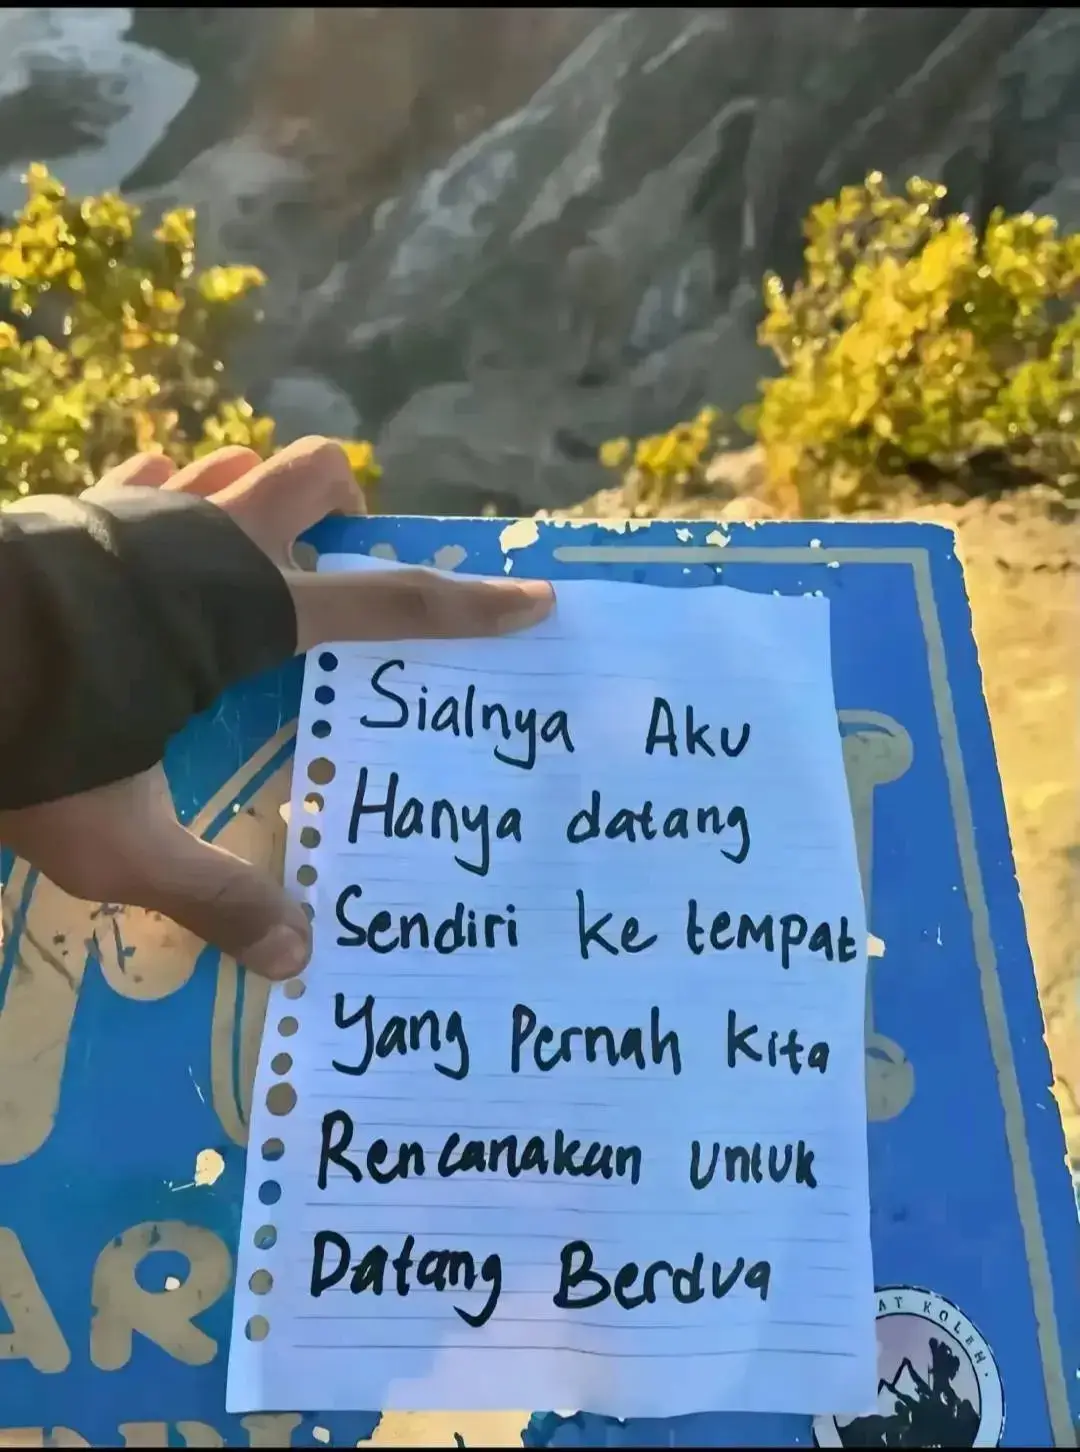 Sialnya Aku
Hanya datang
Sendiri ke tempat
Yang Pernah kita
Rencanakan untuk
Datang Berdua
AR
AT KOLEH